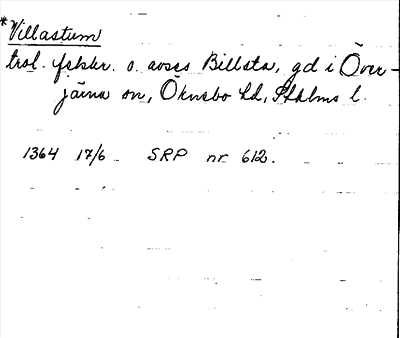 *Villastum
trol. felskr. o. avses Billsta, gd i Över-
järna sn, Öknebo hd, Sthlms l.
1364 17/6 SRP nr 612.